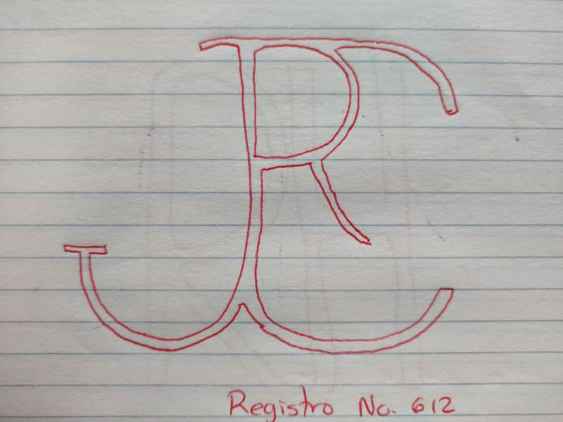 JRC
Registro No. 612